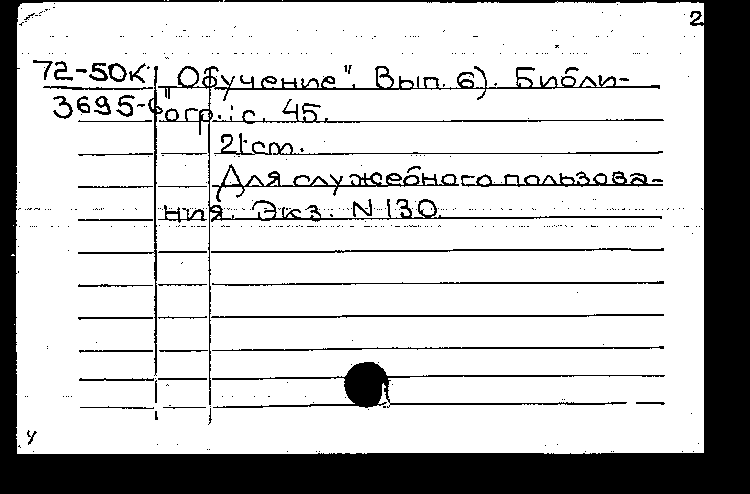 2
72-50к "Обучение". Вып. 6). Библи-
3695-6 огр.: с. 45.
21 cm.
Для служебного пользова-
ния. Экз. N 130.